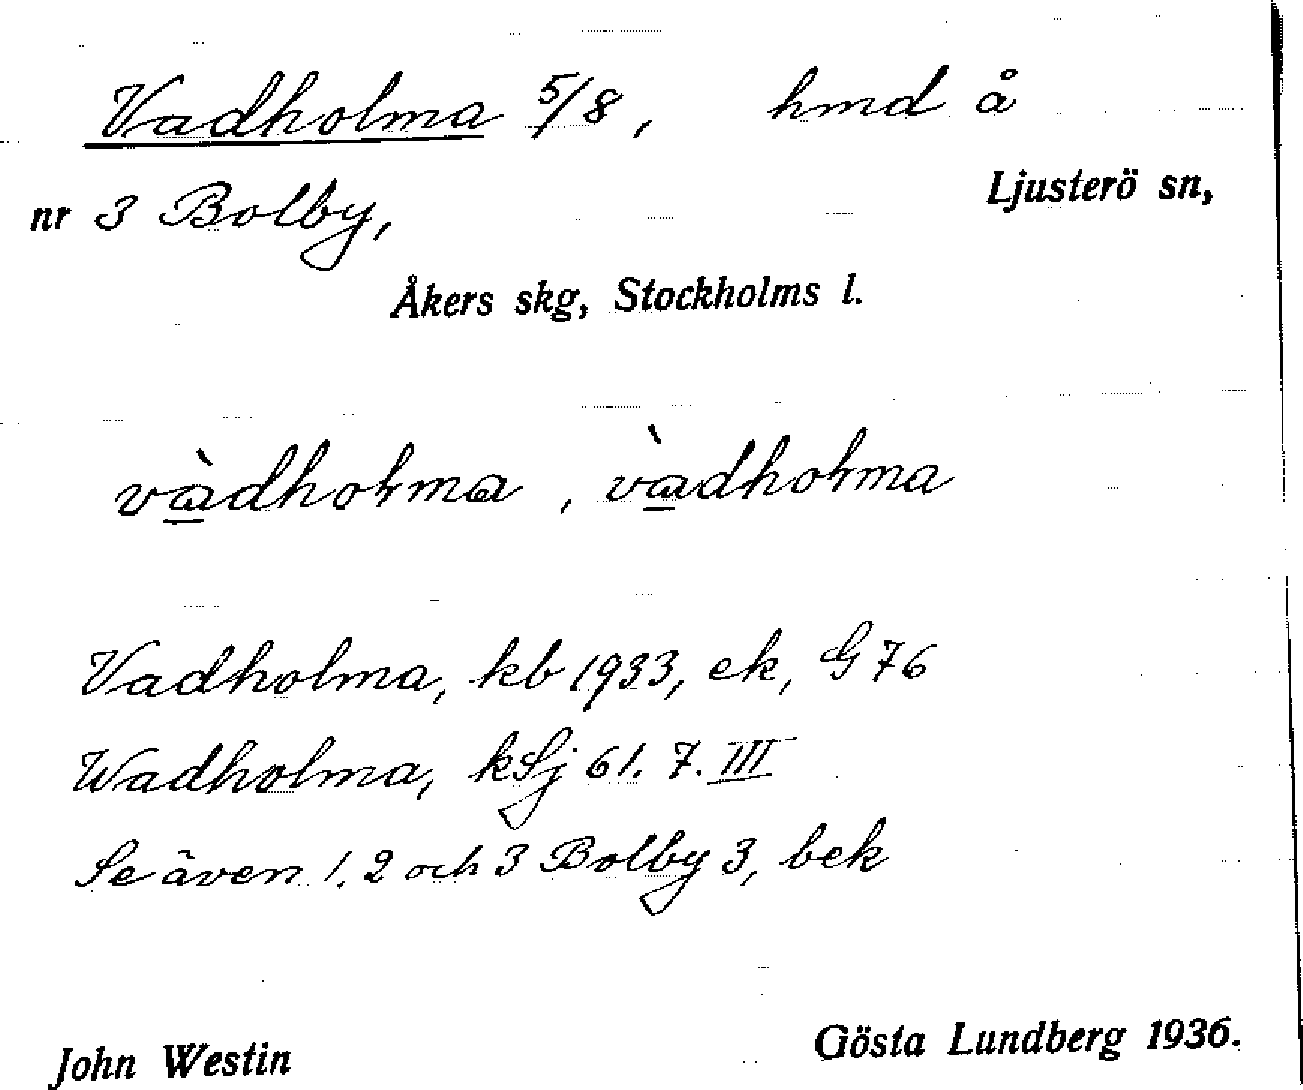 Vadholma 5/8, hmd å
Ljusterö sn,
nr 3 Bolby,
Åkers skg, Stockholms l.
và̱dholma, và̱dholma
Vadholma, kb 1933, ek, G 76
Wadholma, kSj 61. 7. III
Se även 1, 2 och 3 Bolby 3, bek
John Westin
Gösta Lundberg 1936.